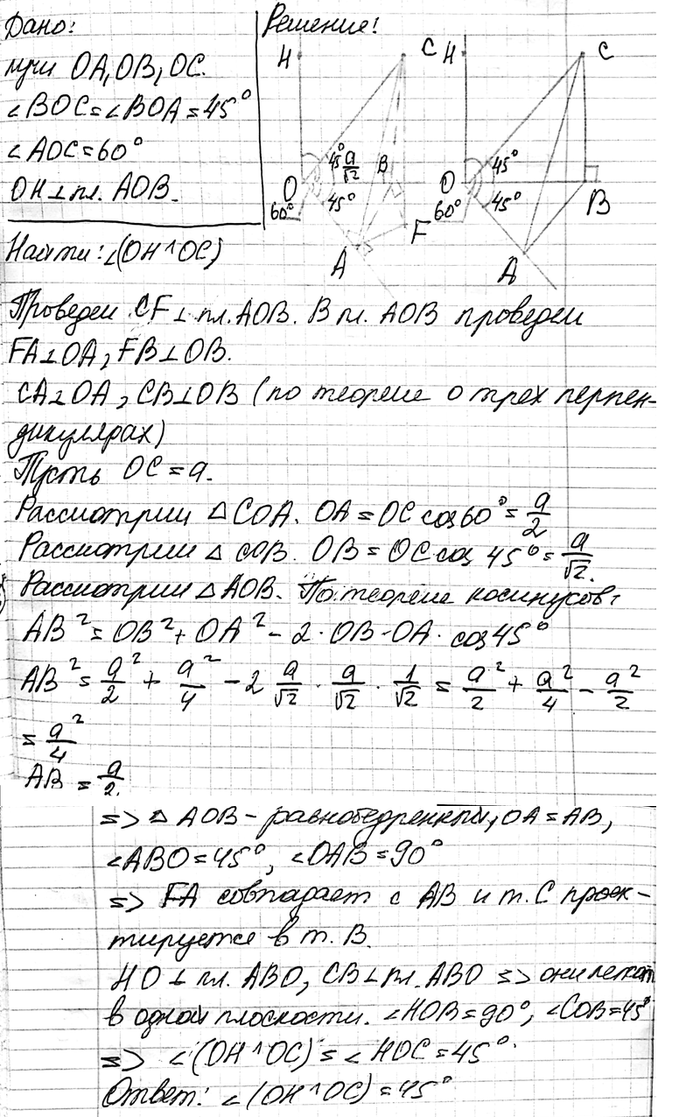 Дано:
лучи OA, OB, OC.
∠BOC=∠BOA=45°
∠AOC=60°
OH⊥пл. AOB.
Решение:
H C H C
45° a/√2 B 45°
O 45° O 45° B
60° F 60°
A A
Найти: ∠(OH^OC)
Проведем CF⊥пл. AOB. В пл. AOB проведем
FA⊥OA, FB⊥OB.
CA⊥OA, CB⊥OB (по теореме о трех перпен-
дикулярах)
Пусть OC=a.
Рассмотрим △COA. OA=OC cos60°=a/2
Рассмотрим △COB. OB=OC cos 45°=a/√2.
Рассмотрим △AOB. По теореме косинусов:
AB²=OB²+OA²-2·OB·OA·cos45°
AB²=a²/2+a²/4-2 a/√2·a/√2·1/√2=a²/2+a²/4-a²/2
=a²/4
AB=a/2.
=> △AOB-равнобедренный, OA=AB,
∠ABO=45°, ∠OAB=90°
=> FA совпадает с AB и т. C проек-
тируется в т. B.
HO⊥пл. ABO, CB⊥пл. ABO => они лежат
в одной плоскости. ∠HOB=90°, ∠COB=45°
=> ∠(OH^OC)=∠HOC=45°.
Ответ: ∠(OH^OC)=45°